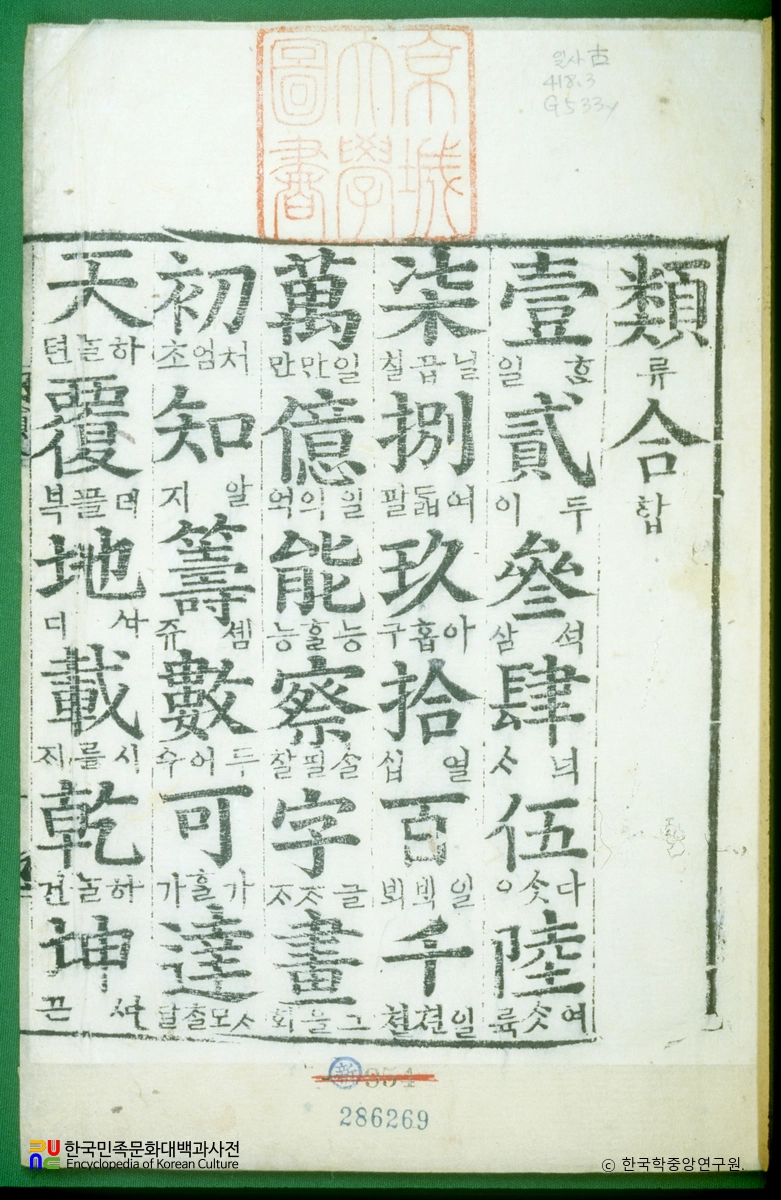 일사古
418.3
G533y
京城
大學
圖書
類 류 合 합
壹 ᄒᆞᆫ 일 貳 두 이 參 석 삼 肆 넉 ᄉᆞ 伍 다ᄉᆞᆺ 오 陸 여ᄉᆞᆺ 륙
柒 닐굽 칠 捌 여ᄃᆞᆲ 팔 玖 아홉 구 拾 열 십 百 일ᄇᆡᆨ ᄇᆡᆨ 千 일쳔 쳔
萬 일만 만 億 일의 억 能 능ᄒᆞᆯ 능 察 ᄉᆞᆯ필 찰 字 글ᄌᆞ ᄌᆞ 畫
初 처엄 초 知 알 지 籌 셈 쥬 數 두어 수 可 가ᄒᆞᆯ 가 達 ᄉᆞ모ᄎᆞᆯ 달
天 하ᄂᆞᆯ 텬 覆 더플 복 地 ᄯᅡ 디 載 시를 ᄌᆡ 乾 하ᄂᆞᆯ 건 坤 ᄯᅡ
新
286269
한국민족문화대백과사전
Encyclopedia of Korean Culture
© 한국학중앙연구원.